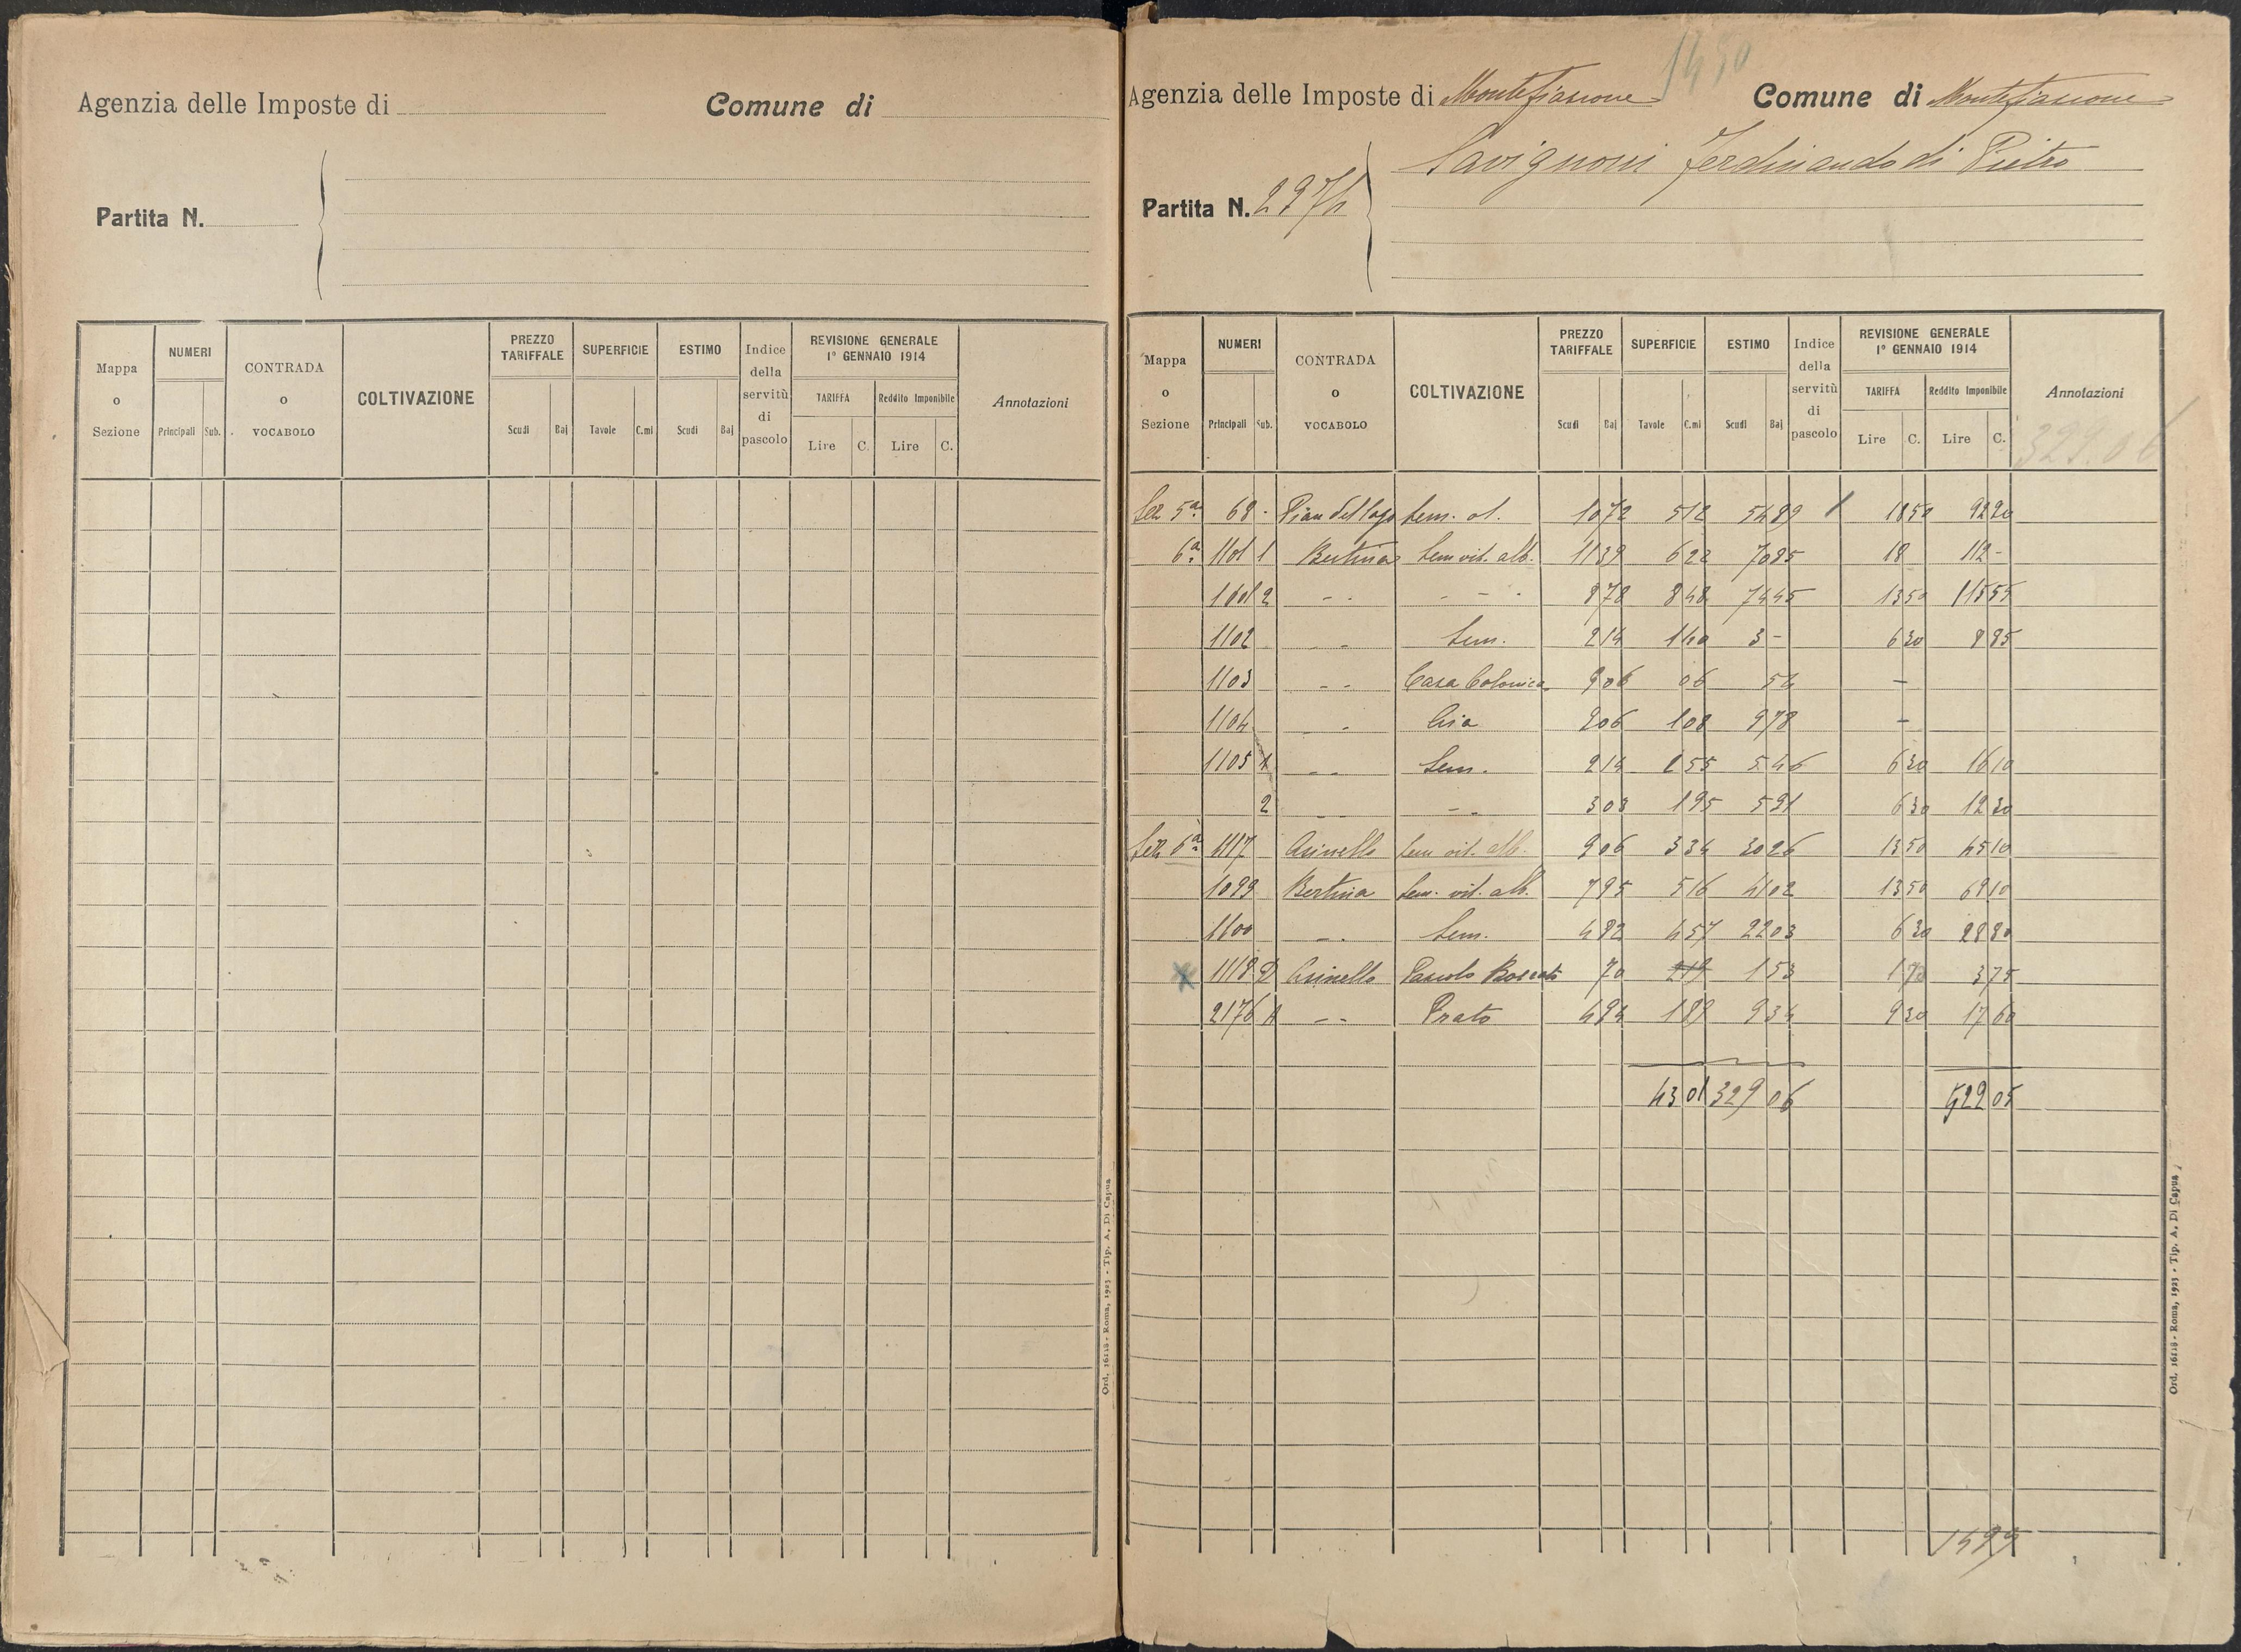 Agenzia delle Imposte di
Comune di
Partita N.
Mappa o Sezione
NUMERI
Principali Sub.
CONTRADA o VOCABOLO
COLTIVAZIONE
PREZZO TARIFFALE
Scudi Baj
SUPERFICIE
Tavole C.mi
ESTIMO
Scudi Baj
Indice della servitù di pascolo
REVISIONE GENERALE 1° GENNAIO 1914
TARIFFA
Lire C.
Reddito Imponibile
Lire C.
Annotazioni
Ord. 16118 - Roma, 1923 - Tip. A. Di Capua
Agenzia delle Imposte di Montefiascone
Comune di Montefiascone
Partita N. 2974
Savignoni Ferdinando di Pietro
Mappa o Sezione
NUMERI
Principali Sub.
CONTRADA o VOCABOLO
COLTIVAZIONE
PREZZO TARIFFALE
Scudi Baj
SUPERFICIE
Tavole C.mi
ESTIMO
Scudi Baj
Indice della servitù di pascolo
REVISIONE GENERALE 1° GENNAIO 1914
TARIFFA
Lire C.
Reddito Imponibile
Lire C.
Annotazioni
329.06
Sez 5ª 68 Pian del lago Sem. ol. 10 72 5 12 54 89 18 50 92 20
6ª 1101 1 Bertina Sem vit. alb. 11 39 6 22 70 85 18 112 -
1101 2 - - - - - 8 78 8 48 74 45 13 50 115 55
1102 - - Sem. 2 14 1 40 3 - 6 30 8 85
1103 - - Casa Colonica 9 06 06 54 -
1104 - Aia 9 06 1 08 9 78 -
1105 1 - - Sem. 2 14 2 55 5 46 6 30 16 10
2 - - - - 3 03 1 95 5 91 6 30 12 30
Sez 6ª 1117 Asinello Sem vit. alb. 9 06 3 34 30 26 13 50 45 10
1099 Bertina Sem. vit. alb. 7 95 5 16 41 02 13 50 69 10
1100 - - Sem. 4 82 4 57 22 03 6 30 28 80
1118 Asinello Pascolo Boscato 70 2 19 1 53 1 70 3 75
2176 A - - Prato 4 94 1 89 9 34 9 30 17 60
43 01 329 06 522 05
Ord. 16118 - Roma, 1923 - Tip. A. Di Capua